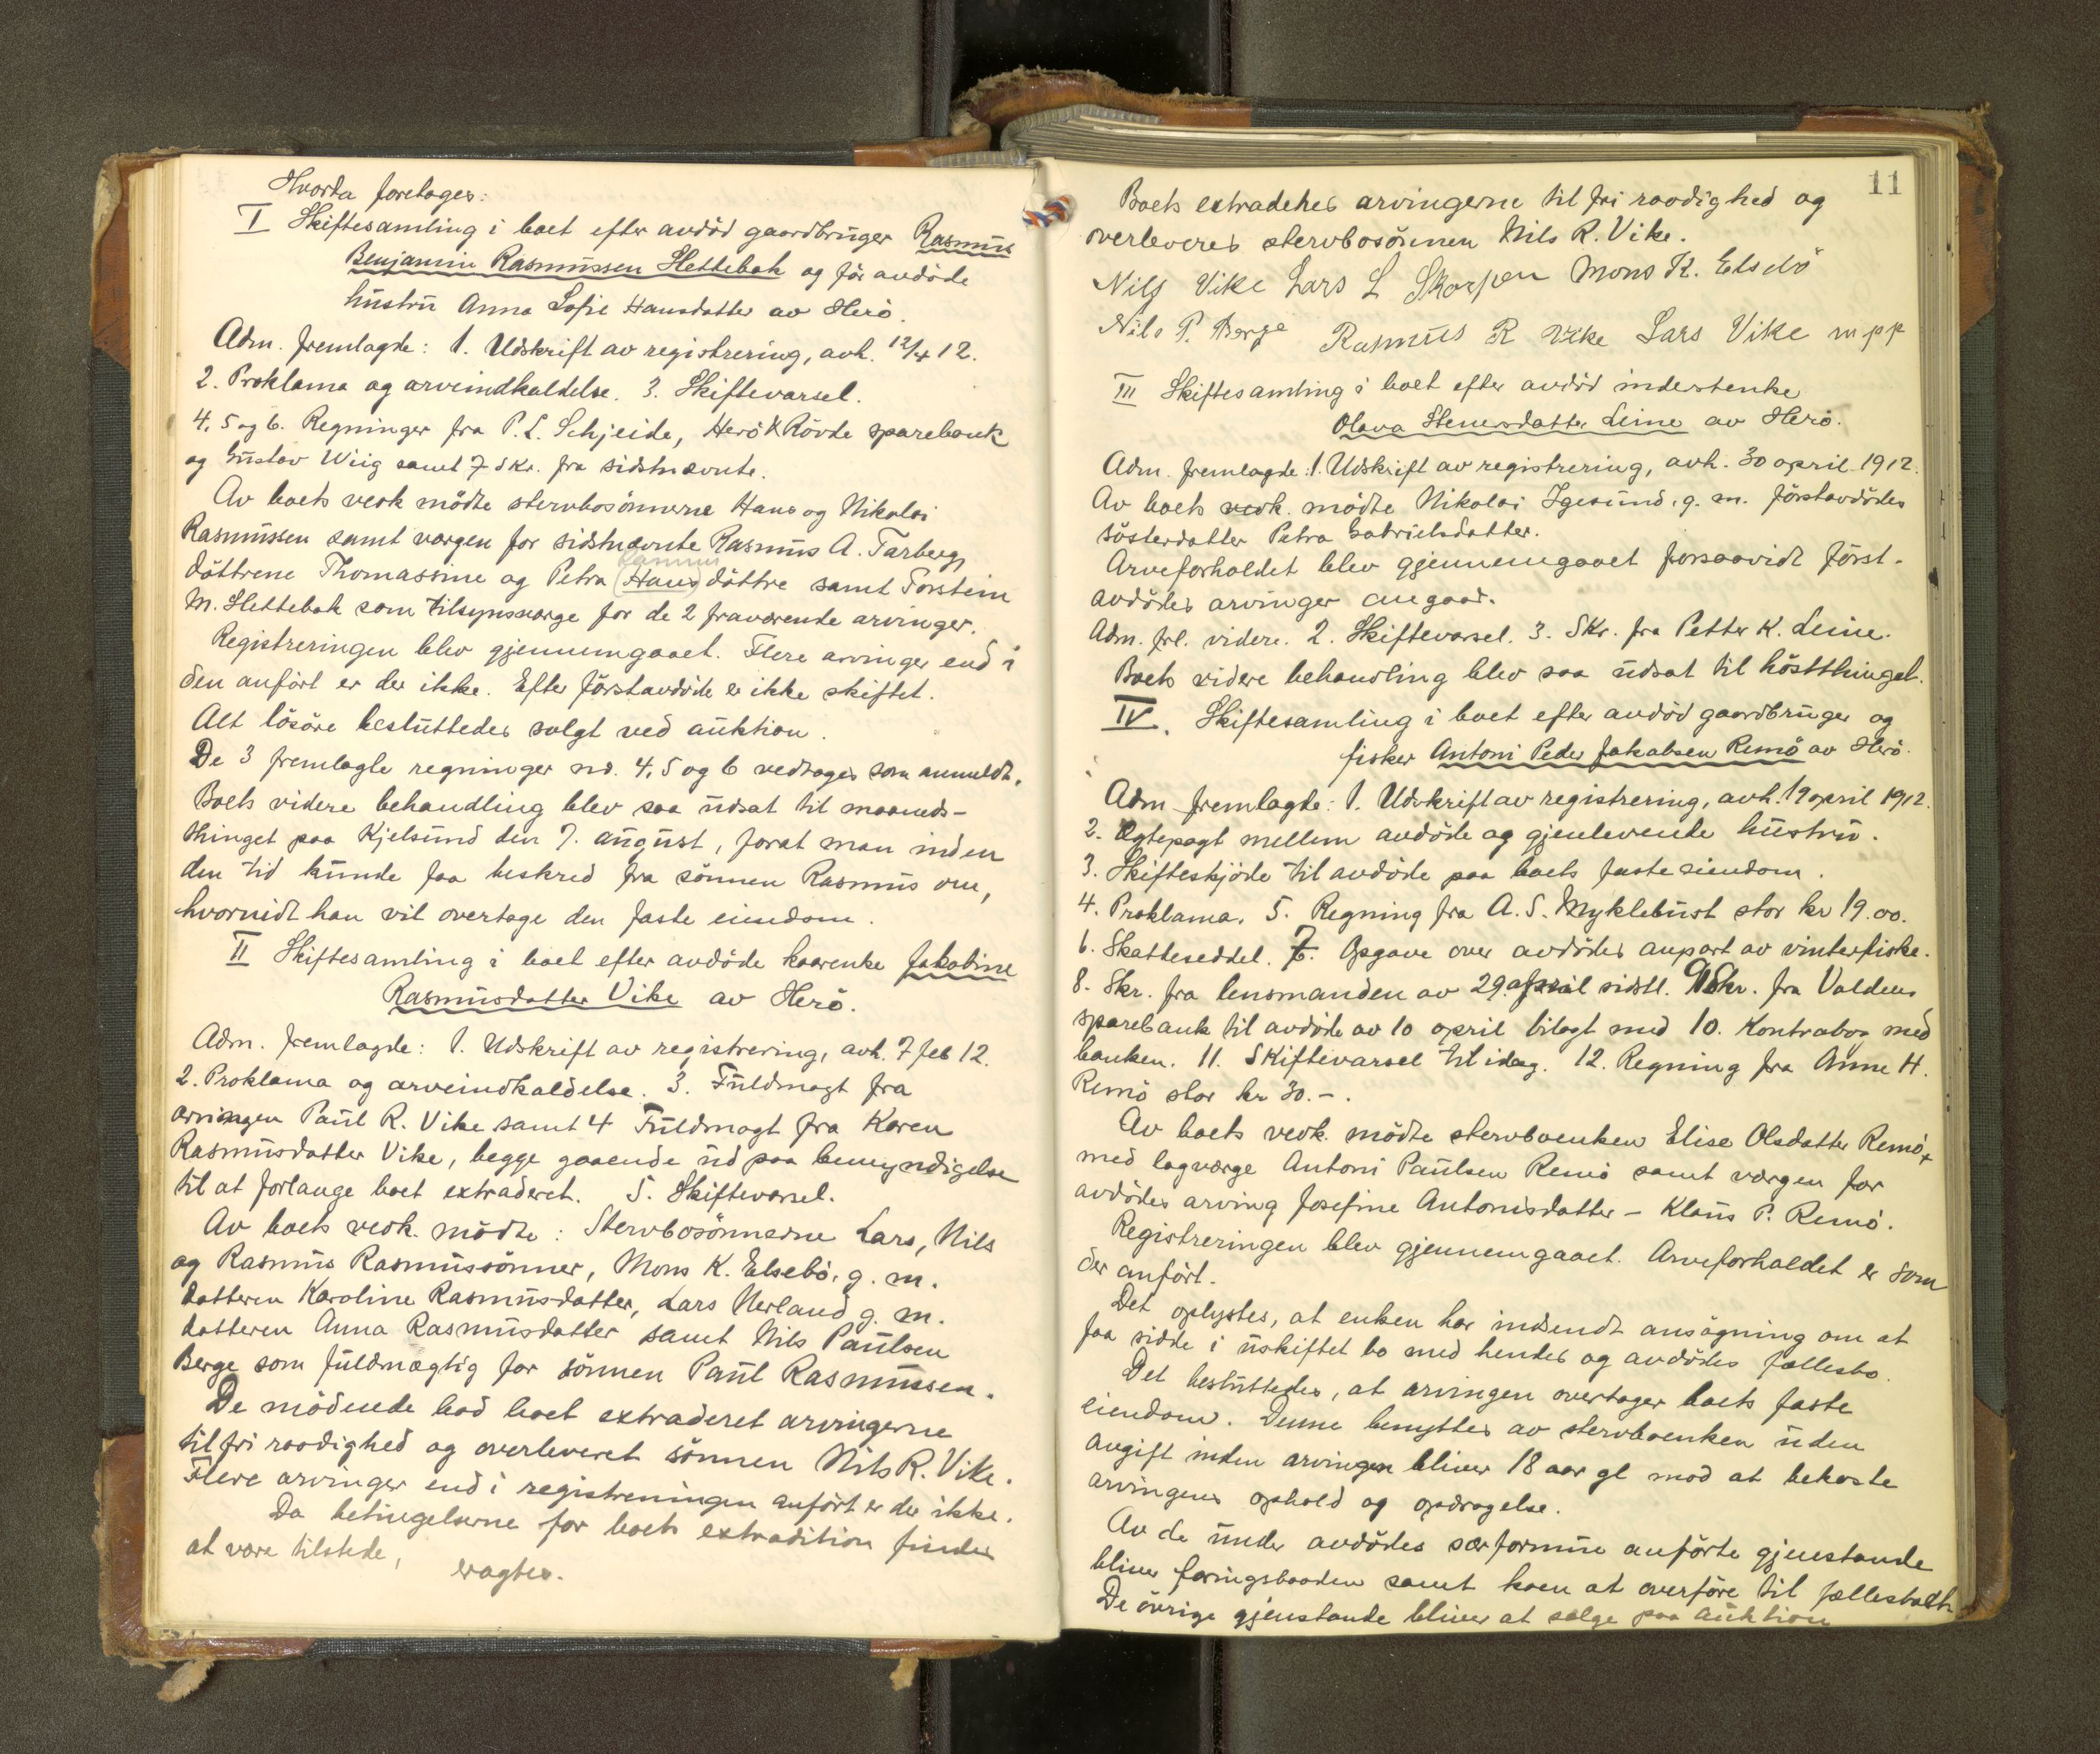 Hvorda foretoges:
I Skiftesamling i boet efter avdød gaardbruger Rasmus
Benjamin Rasmussen Hettebak og før avdøde
hustru Anna Sofie Hansdatter av Herö.
Adm. fremlagde: 1. Udskrift av registrering, avh. 12/4 12.
2. Proklama og arveindkaldelse. 3. Skiftevarsel.
4, 5 og 6. Regninger fra P. L. Schjeide, Herö & Rövde sparebank
og Gustav Wiig samt 7 Skr. fra sidstnævnte.
Av boets vedk mödte stervbosönnerne Hans og Nikolai
Rasmussen samt værgen for sidstnævnte Rasmus A. Tarberg,
döttrene Thomassine og Petra Hansdöttre samt Torstein
M. Hettebak som tilsynsværge for de 2 fraværende arvinger.
Registreringen blev gjennemgaaet. Flere arvinger end i
den anfört er der ikke. Efter förstavdöde er ikke skiftet.
Alt lösöre besluttedes solgt ved auktion.
De 3 fremlagte regninger no. 4, 5 og 6 vedtages som anmeldt.
Boets videre behandling blev saa udsat til maaneds-
thinget paa Kjelsund den 7. august, forat man inden
den tid kunde faa beskred fra sönnen Rasmus om,
hvorvidt han vil overtage den faste eiendom.
II Skiftesamling i boet efter avdöde kaarenke Jakobine
Rasmusdatter Vike av Herö.
Adm. fremlagde: 1. Udskrift av registrering, avh. 7 feb 12.
2. Proklama og arveindkaldelse. 3. Fuldmagt fra
arvingen Paul R. Vike samt 4 Fuldmagt fra Karen
Rasmusdatter Vike, begge gaaende ud paa bemyndigelse
til at forlange boet extraderet. 5. Skiftevarsel.
Av boets vedk. mödte: Stervbosönnerne Lars, Nils
og Rasmus Rasmussönner, Mons K. Elsebö, g. m.
datteren Karoline Rasmusdatter, Lars Nerland g. m.
datteren Anna Rasmusdatter samt Nils Paulsen
Berge som fuldmægtig for sönnen Paul Rasmussen.
De mödende bad boet extraderet arvingerne
til fri raadighed og overleveret sönnen Nils R. Vike.
Flere arvinger end i registreningen anført er der ikke.
Da betingelserne for boets extradition findes
at være tilstede, eragtes.
11
Boets extraderes arvingerne til fri raadighed og
overleveres stervbosönnen Nils R. Vike.
Nils Vike Lars L Skorpen Mons K. Elsebö
Nils P. Berge Rasmus R Vike Lars Vike m p p
III Skiftesamling i boet efter avdöd inderstenke
Olava Stenersdatter Leine av Herö.
Adm. fremlagde: 1. Udskrift av registrering, avh. 30 april 1912.
Av boets vedk. mödte Nikolai Igesund, g. m. förstavdödes
sösterdatter Petra Gabrielsdatter.
Arveforholdet blev gjennemgaaet forsaavidt först-
avdödes arvinger angaar.
Adm. frl. videre. 2. Skiftevarsel. 3. Skr. fra Petter K. Leine.
Boets videre behandling blev saa udsat til höstthinget.
IV. Skiftesamling i boet efter avdöd gaardbruger og
fisker Antoni Peder Jakobsen Remö av Herö.
Adm fremlagde: 1. Udskrift av registrering, avh. 19 april 1912.
2. Ægtepagt mellem avdöde og gjenlevende hustru.
3. Skifteskjöde til avdöde paa boets faste eiendom.
4. Proklama. 5. Regning fra A. S. Myklebust stor kr 19.00.
6. Skatteseddel. 7. Opgave over avdödes anpart av vinterfiske.
8. Skr. fra lensmanden av 29. april sidstl. 9. Skr. fra Valdens
sparebank til avdöde av 10 april bilagt med 10. Kontrabog med
banken. 11. Skiftevarsel til idag. 12. Regning fra Anne H.
Remö stor kr 30.-.
Av boets vedk. mödte stervboenken Elise Olsdatter Remö,
med lagværge Antoni Paulsen Remö samt værgen for
avdödes arving Josefine Antonisdatter - Klaus P. Remö.
Registreringen blev gjennemgaaet. Arveforholdet er som
der anfört.
Det oplystes, at enken har indsendt ansögning om at
faa sidde i uskiftet bo med hendes og avdödes fællesbo.
Det besluttedes, at arvingen overtager boets faste
eiendom. Denne benyttes av stervboenken uden
avgift inden arvingen bliver 18 aar gl mod at bekoste
arvingens ophold og opdragelse.
Av de under avdödes særformue anförte gjenstande
bliver færingsbaaden samt koen at overföre til fællesboet.
De övrige gjenstande bliver at sælge paa auktion